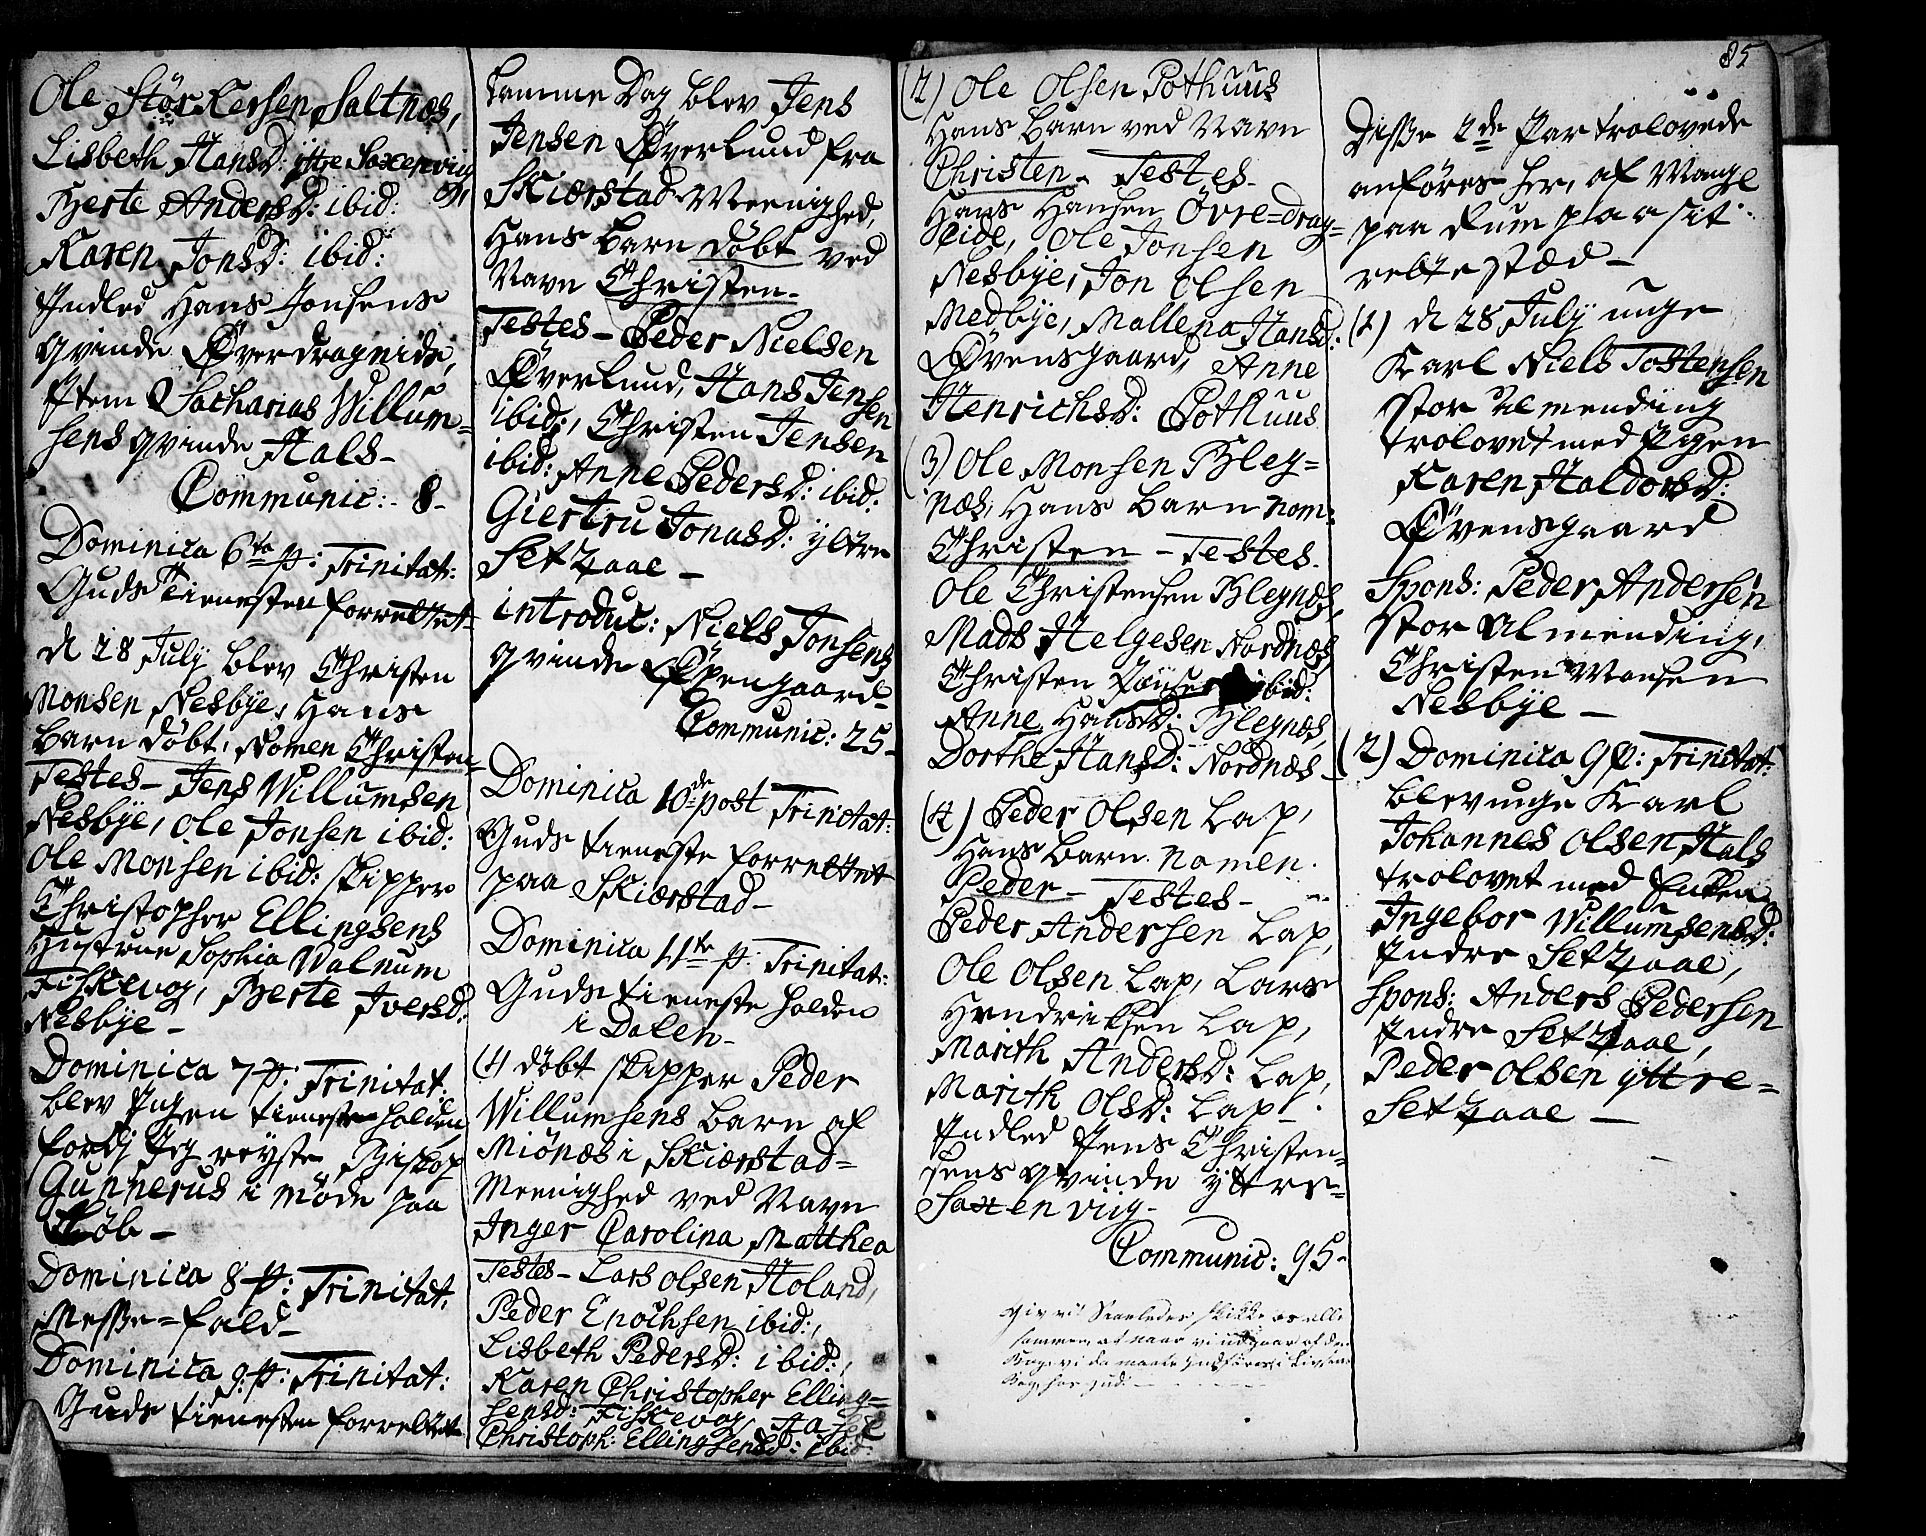 Ole Störkersen Saltnæs,
Lisbeth HansD: yttre Saxenviig
Berte AndersD: ibid:
Karen JonsD: ibid:
Indled Hans Jonsens
Qvinde Øverdragneide,
Item Zacharias Willum-
sens Qvinde Hals-
Communic: 8-
Dominica 6te p: Trinitat:
Guds Tienesten forrettet-
d 28 July blev Christen
Monsen Nesbye, Hans
barn döbt, Nomen Christen
Testes- Jens Willumsen
Nesbye, Ole Jonsen ibid:
Ole Monsen ibid: skipper
Christopher Ellingsens
Hustrue Sophia Walnum
Fiskevog, Berte IversD:
Nesbye-
Dominica 7 p: Trinitat:
blev Ingen tieneste holden
fordi Jeg reyste Biskop
Gunnerus i möde paa
Dominica 8 p: Trinitat:
Messe=fald-
Dominica 9 p: Trinitat:
Guds tienesten forrettet
samme Dag blev Jens
Jensen Øverlund fra
Skierstad Meenighed,
Hans barn döbt ved
Navn Christen-
Testes- Peder Nielsen
Øverlund, Hans Jensen
ibid:, Christen Jensen
ibid: Anne PedersD: ibid:
Giertru JonasD: yttre
Setzaae-
introduc: Niels Jonsens
Qvinde Øvengaard-
Communic: 25-
Dominica 10de post Trinitat:
Guds tieneste forrettet
paa Skierstad-
Dominica 11te p: Trinitat:
Guds tieneste holden
i Dalen-
(1) döbt skipper Peder
Willumsens barn af
Miönæs i Skierstad=
Meenighed ved Navn
Inger Carolina Matthea
Testes- Lars Olsen Holand,
Peder Enochsen ibid:,
Lisbeth PedersD: ibid:,
Karen Christopher Elling=
sensD: Fiskevog,
Christoph: EllingsensD: ibid:
(2) Ole Olsen Pothuus
Hans barn ved Navn
Christen- Testes-
Hans Hansen Övre=drag=
eide, Ole Jonsen
Nesbye, Jon Olsen
Medbye, Mallena HansD:
Øvensgaard, Anne
HenrichsD: Pothuus
(3) Ole Monsen Kley=
næs, Hans barn nom:
Christen - Testes-
Ole Christensen Kleynæs,
Mads Helgesen Nordnæs
Christen ibid:
Anne HansD: Kleynæs,
Dorthe HansD: Nordnæs-
(4) Peder Olsen Lap,
Hans barn nomen
Peder- Testes-
Peder Andersen Lap,
Ole Olsen Lap, Lars
Hendriksen Lap,
Marith AndersD: Lap,
Marith OlsD: Lap-
Indled Jens Christen-
sens Qvinde yttre-
Saxenviig-
Communic: 95-
Giv vi Saaledes skikke os alle
sammen, at naar vi udgaar af den
Bog, vi da maate Indföres i Livsens
Bog, hos Gud:
85
Disse 2de Par trolovede
anföres her, af Mangel
paa Rum paa sit
rette stæd-
(1) d 28 July unge
Karl Niels Tostensen
Stor Almending
trolovet med Pigen
Karen HaldorsD:
Øvensgaard
Spons: Peder Andersen
Stor Almending,
Christen Monsen
Nesbye-
(2) Dominica 9 p: Trinitat:
blev unge Karl
Johannes Olsen Hals
trolovet med Enken
Ingebor WillumsensD:
Indre Setzaae,
Spons: Anders Pedersen
Indre Setzaae,
Peder Olsen yttre=
Setzaae-